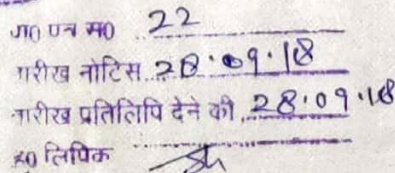 प्रा0 पत्र स0 22
तारीख नोटिस 28.09.18
तारीख प्रतिलिपि देने की 28.09.18
ह0 लिपिक